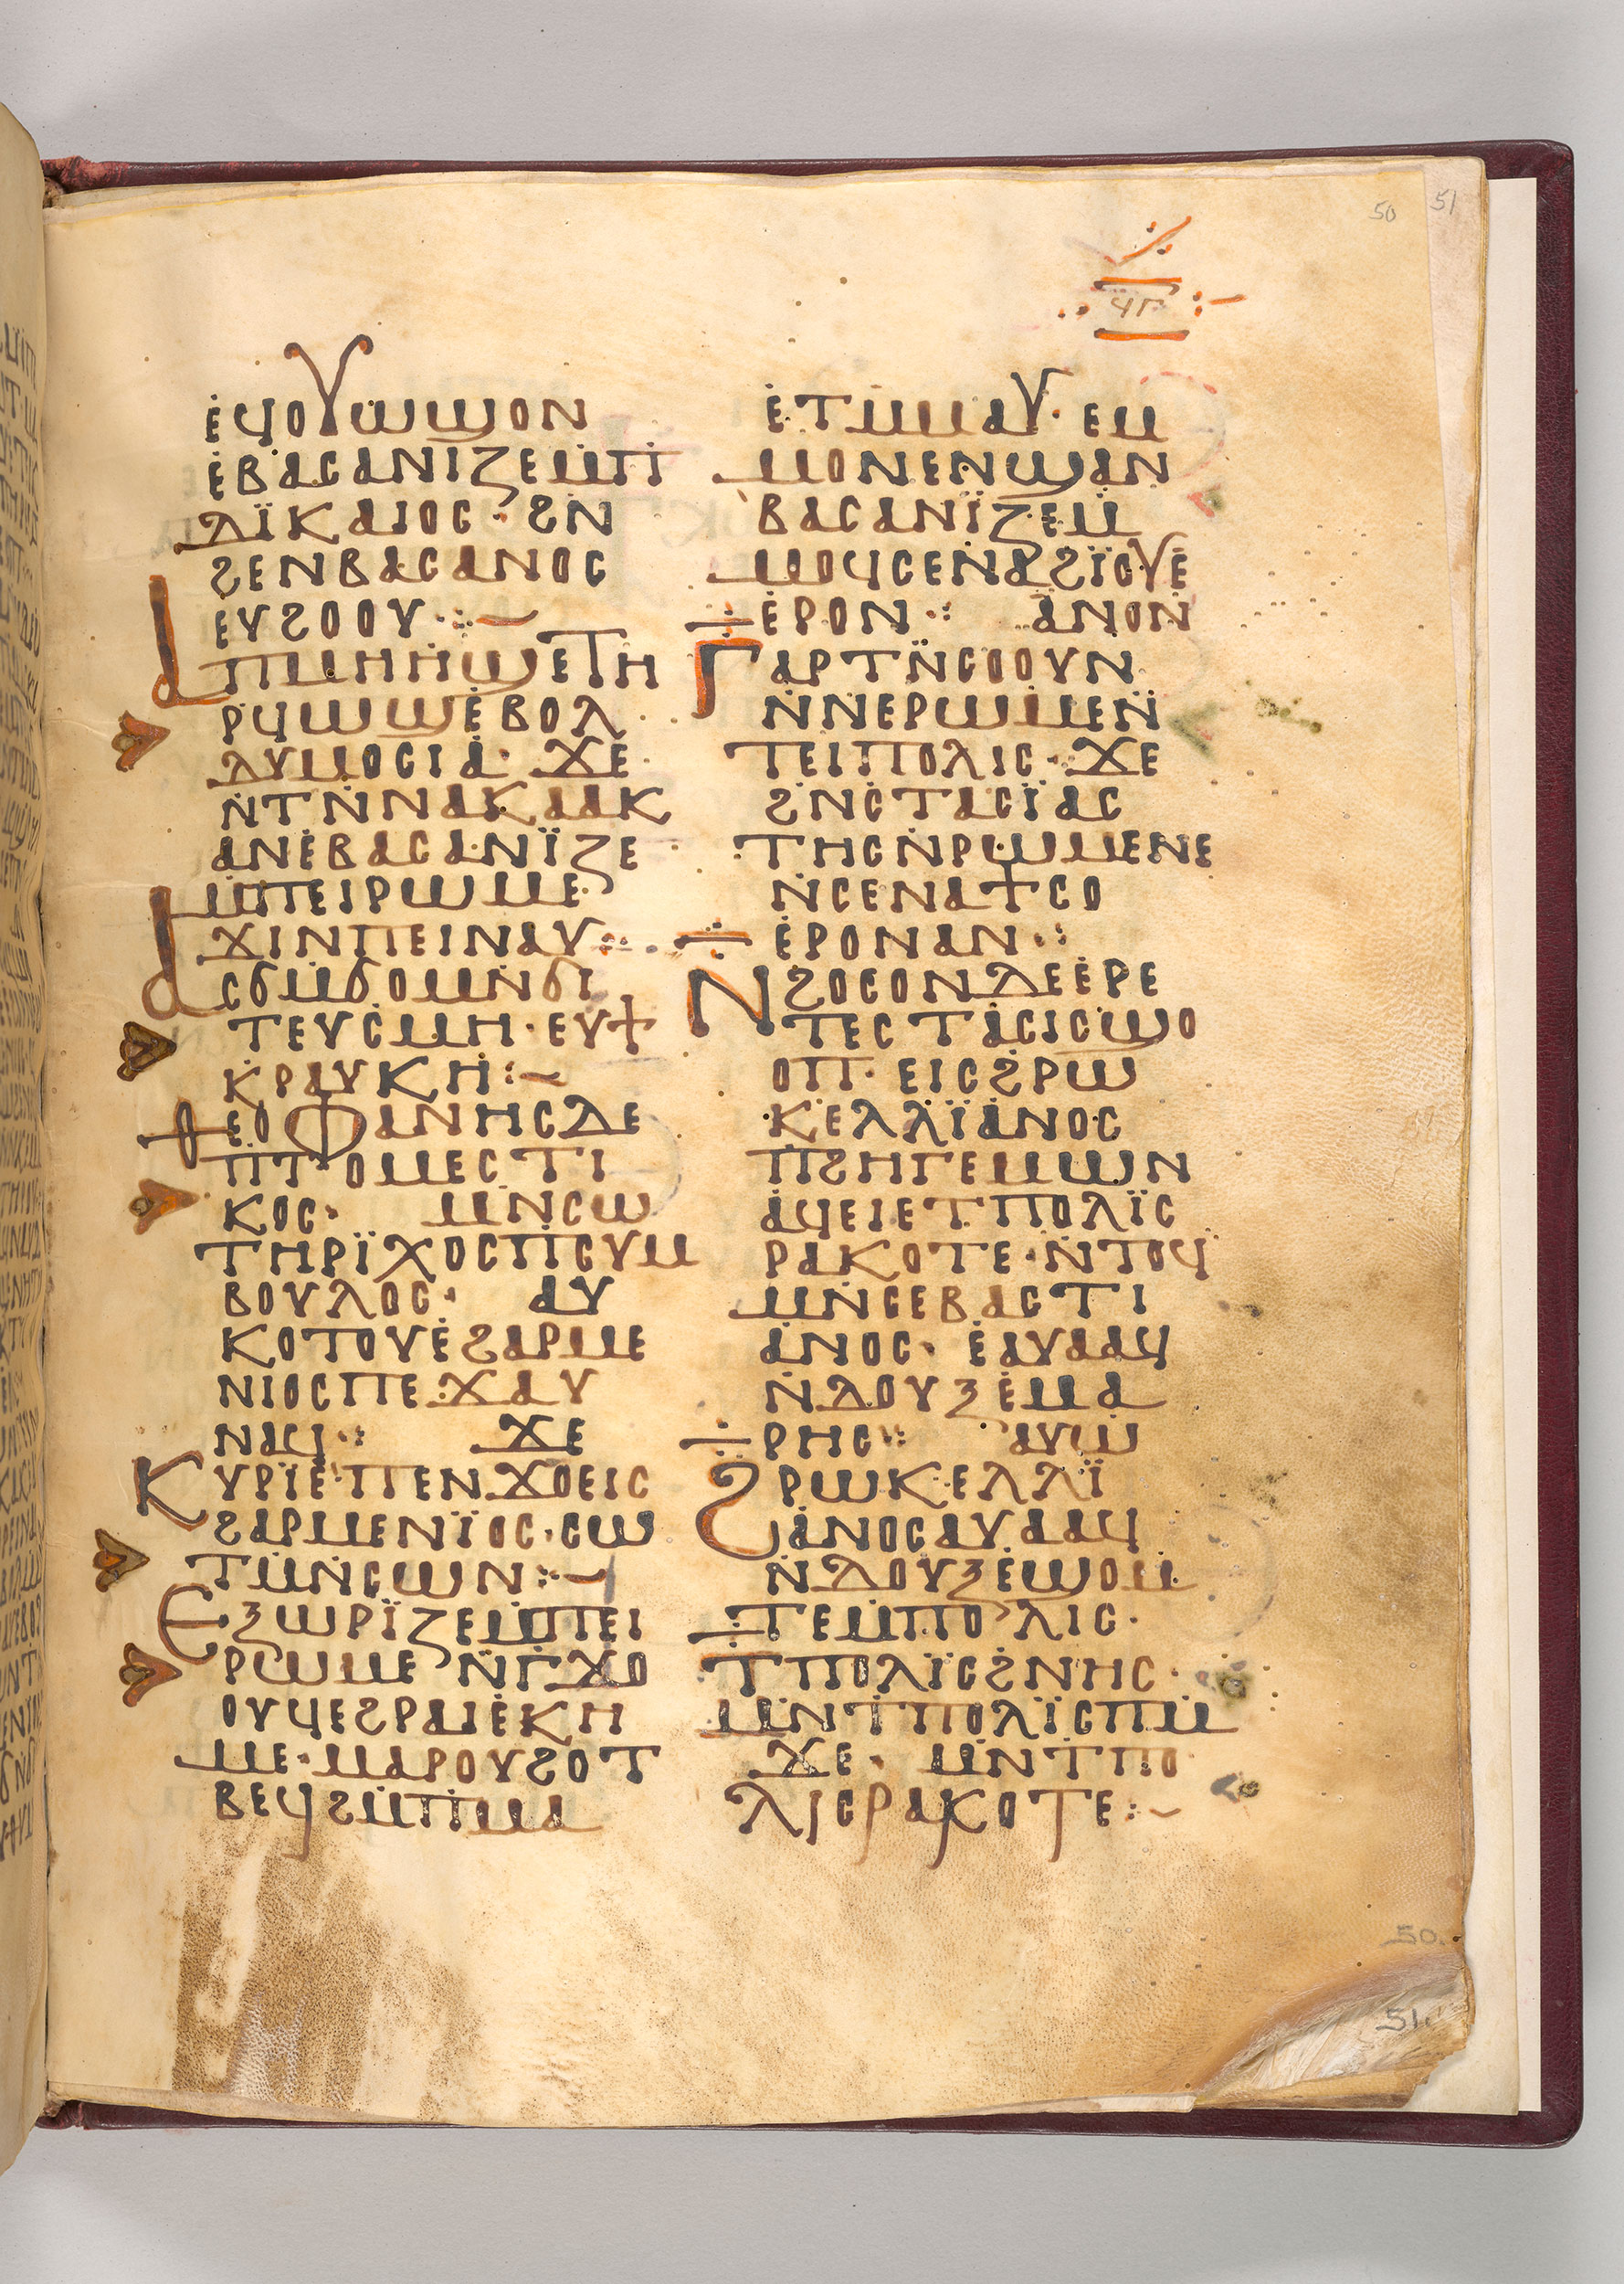 50
51
ϥⲅ
ⲉϥⲟⲩⲱϣⲟⲛ
ⲉⲃⲁⲥⲁⲛⲓⲍⲉⲙⲡⲓ
ⲇⲓ̈ⲕⲁⲓⲟⲥ· ϩⲛ
ϩⲉⲛⲃⲁⲥⲁⲛⲟⲥ
ⲉⲩϩⲟⲟⲩ·:~
ⲁⲡⲙⲏⲏϣⲉⲧⲏ
ⲣϥⲱϣⲉⲃⲟⲗ
ⲇⲩⲙⲟⲥⲓⲁ· ϫⲉ
ⲛ̇ⲧⲛ̇ⲛⲁⲕⲁⲁⲕ
ⲁⲛⲉⲃⲁⲥⲁⲛⲓ̈ⲍⲉ
ⲙⲡⲉⲓⲣⲱⲙⲉ
ϫⲓⲛⲡⲉⲓⲛⲁⲩ·:
ⲁⲥϭⲙϭⲟⲙⲛϭⲓ
ⲧⲉⲩⲥⲙⲏ·ⲉⲩϯ
ⲕⲣⲁⲩⲕⲏ:~
ⲑⲉⲟⲫⲁⲛⲏⲥⲇⲉ
ⲡⲧⲟⲙⲉⲥⲧⲓ
ⲕⲟⲥ· ⲙⲛⲥⲱ
ⲧⲏⲣⲓ̈ⲭⲟⲥⲡⲥⲩⲙ
ⲃⲟⲩⲗⲟⲥ· ⲁⲩ
ⲕⲟⲧⲟⲩⲉϩⲁⲣⲙⲉ
ⲛⲓⲟⲥⲡⲉϫⲁⲩ
ⲛⲁϥ·: ϫⲉ
ⲕⲩⲣⲓ̈ⲉ·ⲡⲉⲛϫⲟⲉⲓⲥ
ϩⲁⲣⲙⲉⲛⲓ̈ⲟⲥ·ⲥⲱ
ⲧⲙⲛⲥⲱⲛ:~
ⲉⲝⲱⲣⲓ̈ⲍⲉⲙⲡⲉⲓ
ⲣⲱⲙⲉ ⲛ̇ⲅϫⲟ
ⲟⲩϥⲉϩⲣⲁⲓⲉⲕⲏ
ⲙⲉ·ⲙⲁⲣⲟⲩϩⲟⲧ
ⲃⲉϥϩⲙⲡⲙⲁ
ⲉⲧⲙⲙⲁⲩ· ⲉⲙ
ⲙⲟⲛⲉⲛϣⲁⲛ
ⲃⲁⲥⲁⲛⲓ̈ⲍⲉⲙ
ⲙⲟϥⲥⲉⲛⲁϩⲓ̈ⲟⲩⲉ
ⲉⲣⲟⲛ·: ⲁⲛⲟⲛ
ⲅⲁⲣⲧⲛ̈ⲥⲟⲟⲩⲛ
ⲛ̇ⲛⲉⲣⲱⲙⲉⲛ̈
ⲧⲉⲓⲡⲟⲗⲓⲥ·ϫⲉ
ϩⲛⲥⲧⲁⲥⲓ̈ⲁⲥ
ⲧⲏⲥⲛⲣⲱⲙⲉⲛⲉ
ⲛ̇ⲥⲉⲛⲁϯⲥⲟ
ⲉⲣⲟⲛⲁⲛ·:
ⲛϩⲟⲥⲟⲛⲇⲉⲉⲣⲉ
ⲧⲉⲥⲧⲁⲥⲓⲥϣⲟ
ⲟⲡ· ⲉⲓⲥϩⲣⲱ
ⲕⲉⲗⲗⲓ̈ⲁⲛⲟⲥ
ⲡϩⲏⲅⲉⲙⲱⲛ
ⲁϥⲉⲓⲉⲧⲡⲟⲗⲓ̈ⲥ
ⲣⲁⲕⲟⲧⲉ·ⲛⲧⲟϥ
ⲙⲛⲥⲉⲃⲁⲥⲧⲓ
ⲁⲛⲟⲥ· ⲉⲁⲩⲁⲁϥ
ⲛ̇ⲇⲟⲩⲝⲉⲙⲁ
ⲣⲏⲥ·: ⲁⲩⲱ
ϩⲣⲱⲕⲉⲗⲗⲓ̈
ⲁⲛⲟⲥⲁⲩⲁⲁϥ
ⲛ̇ⲇⲟⲩⲝⲉϣⲟⲙ
ⲧⲉⲙⲡⲟⲗⲓⲥ·
ⲧⲡⲟⲗⲓ̈ⲥϩⲛⲏⲥ·
ⲙⲛⲧⲡⲟⲗⲓ̈ⲥⲡⲙ
ϫⲉ· ⲙⲛⲧⲡⲟ
ⲗⲓⲥⲣⲁⲕⲟⲧⲉ:~
50.
51.